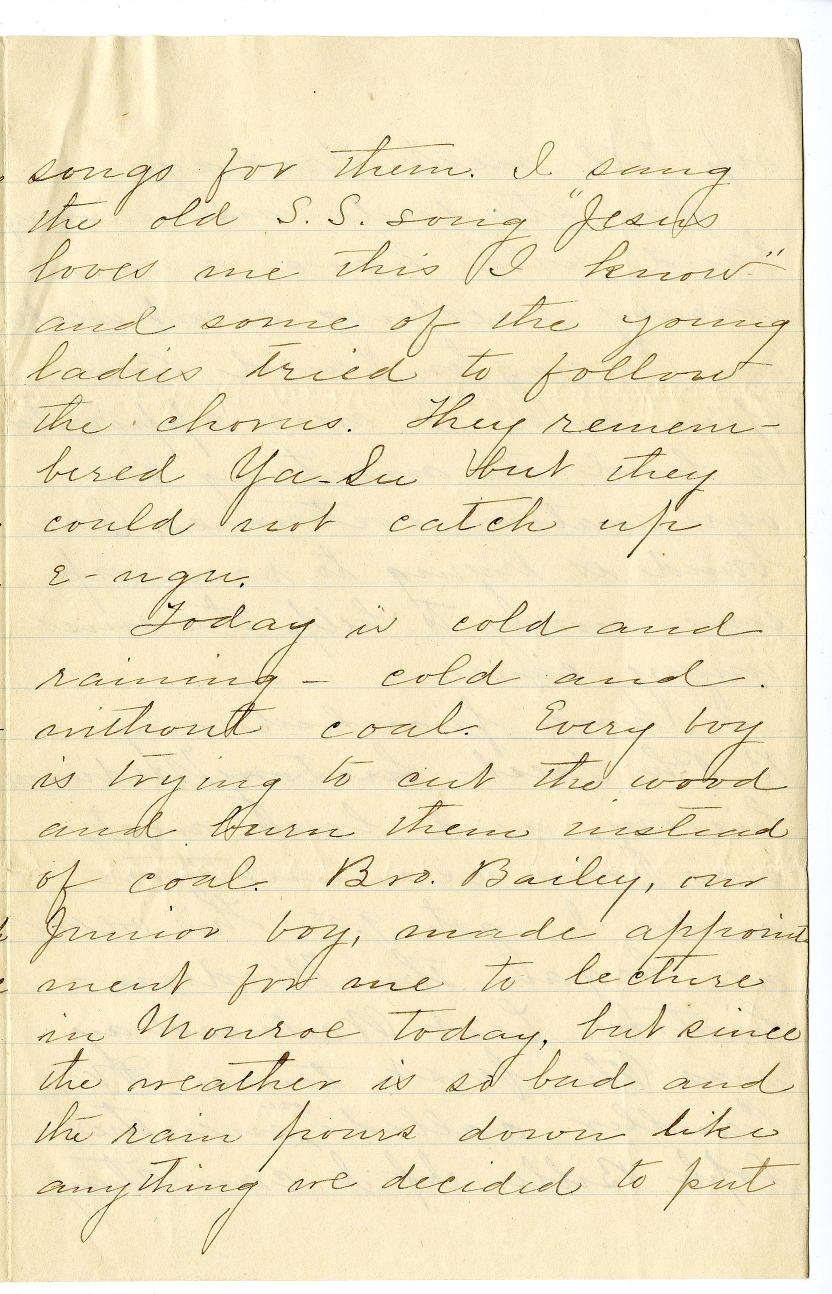 songs for them. I sang
the old S. S. song "Jesus
loves me this I know"
and some of the young
ladies tried to follow
the chorus. They remem-
bered Ya-Su but they
could not catch up
E-ngu.
Today is cold and
raining - cold and
without coal. Every boy
is trying to cut the wood
and burn them instead
of coal. Bro. Bailey, our
Junior boy, made appoint
ment for me to lecture
in Monroe today, but since
the weather is so bad and
the rain pours down like
anything we decided to put